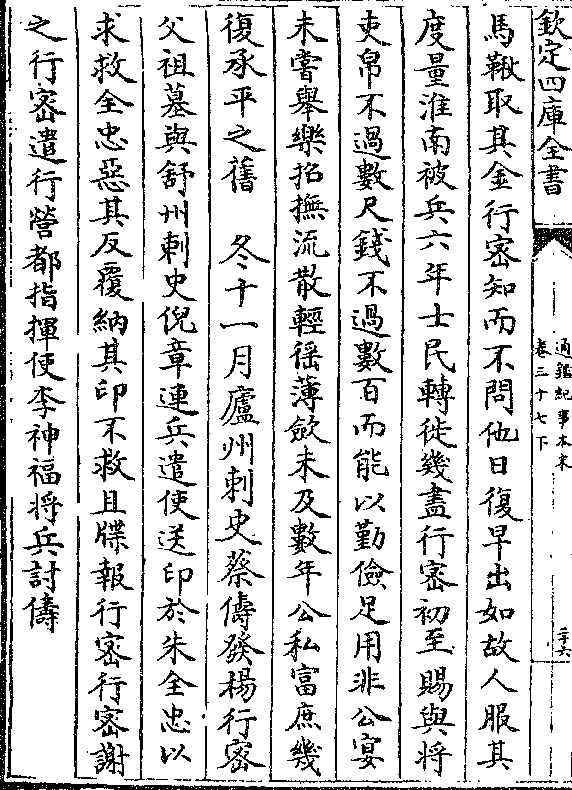 欽定四庫全書
通鑑紀事本末
卷三十七下
二十六
馬鞦取其金行密知而不問他日復早出如故人服其
度量淮南被兵六年士民轉徙幾盡行密初至賜與將
吏帛不過數尺錢不過數百而能以勤儉足用非公宴
未嘗舉樂招撫流散輕徭薄斂未及數年公私富庶幾
復承平之舊　冬十一月廬州刺史蔡儔發楊行密
父祖墓與舒州刺史倪章連兵遣使送印於朱全忠以
求救全忠惡其反覆納其印不救且牒報行密行密謝
之行密遣行營都指揮使李神福將兵討儔